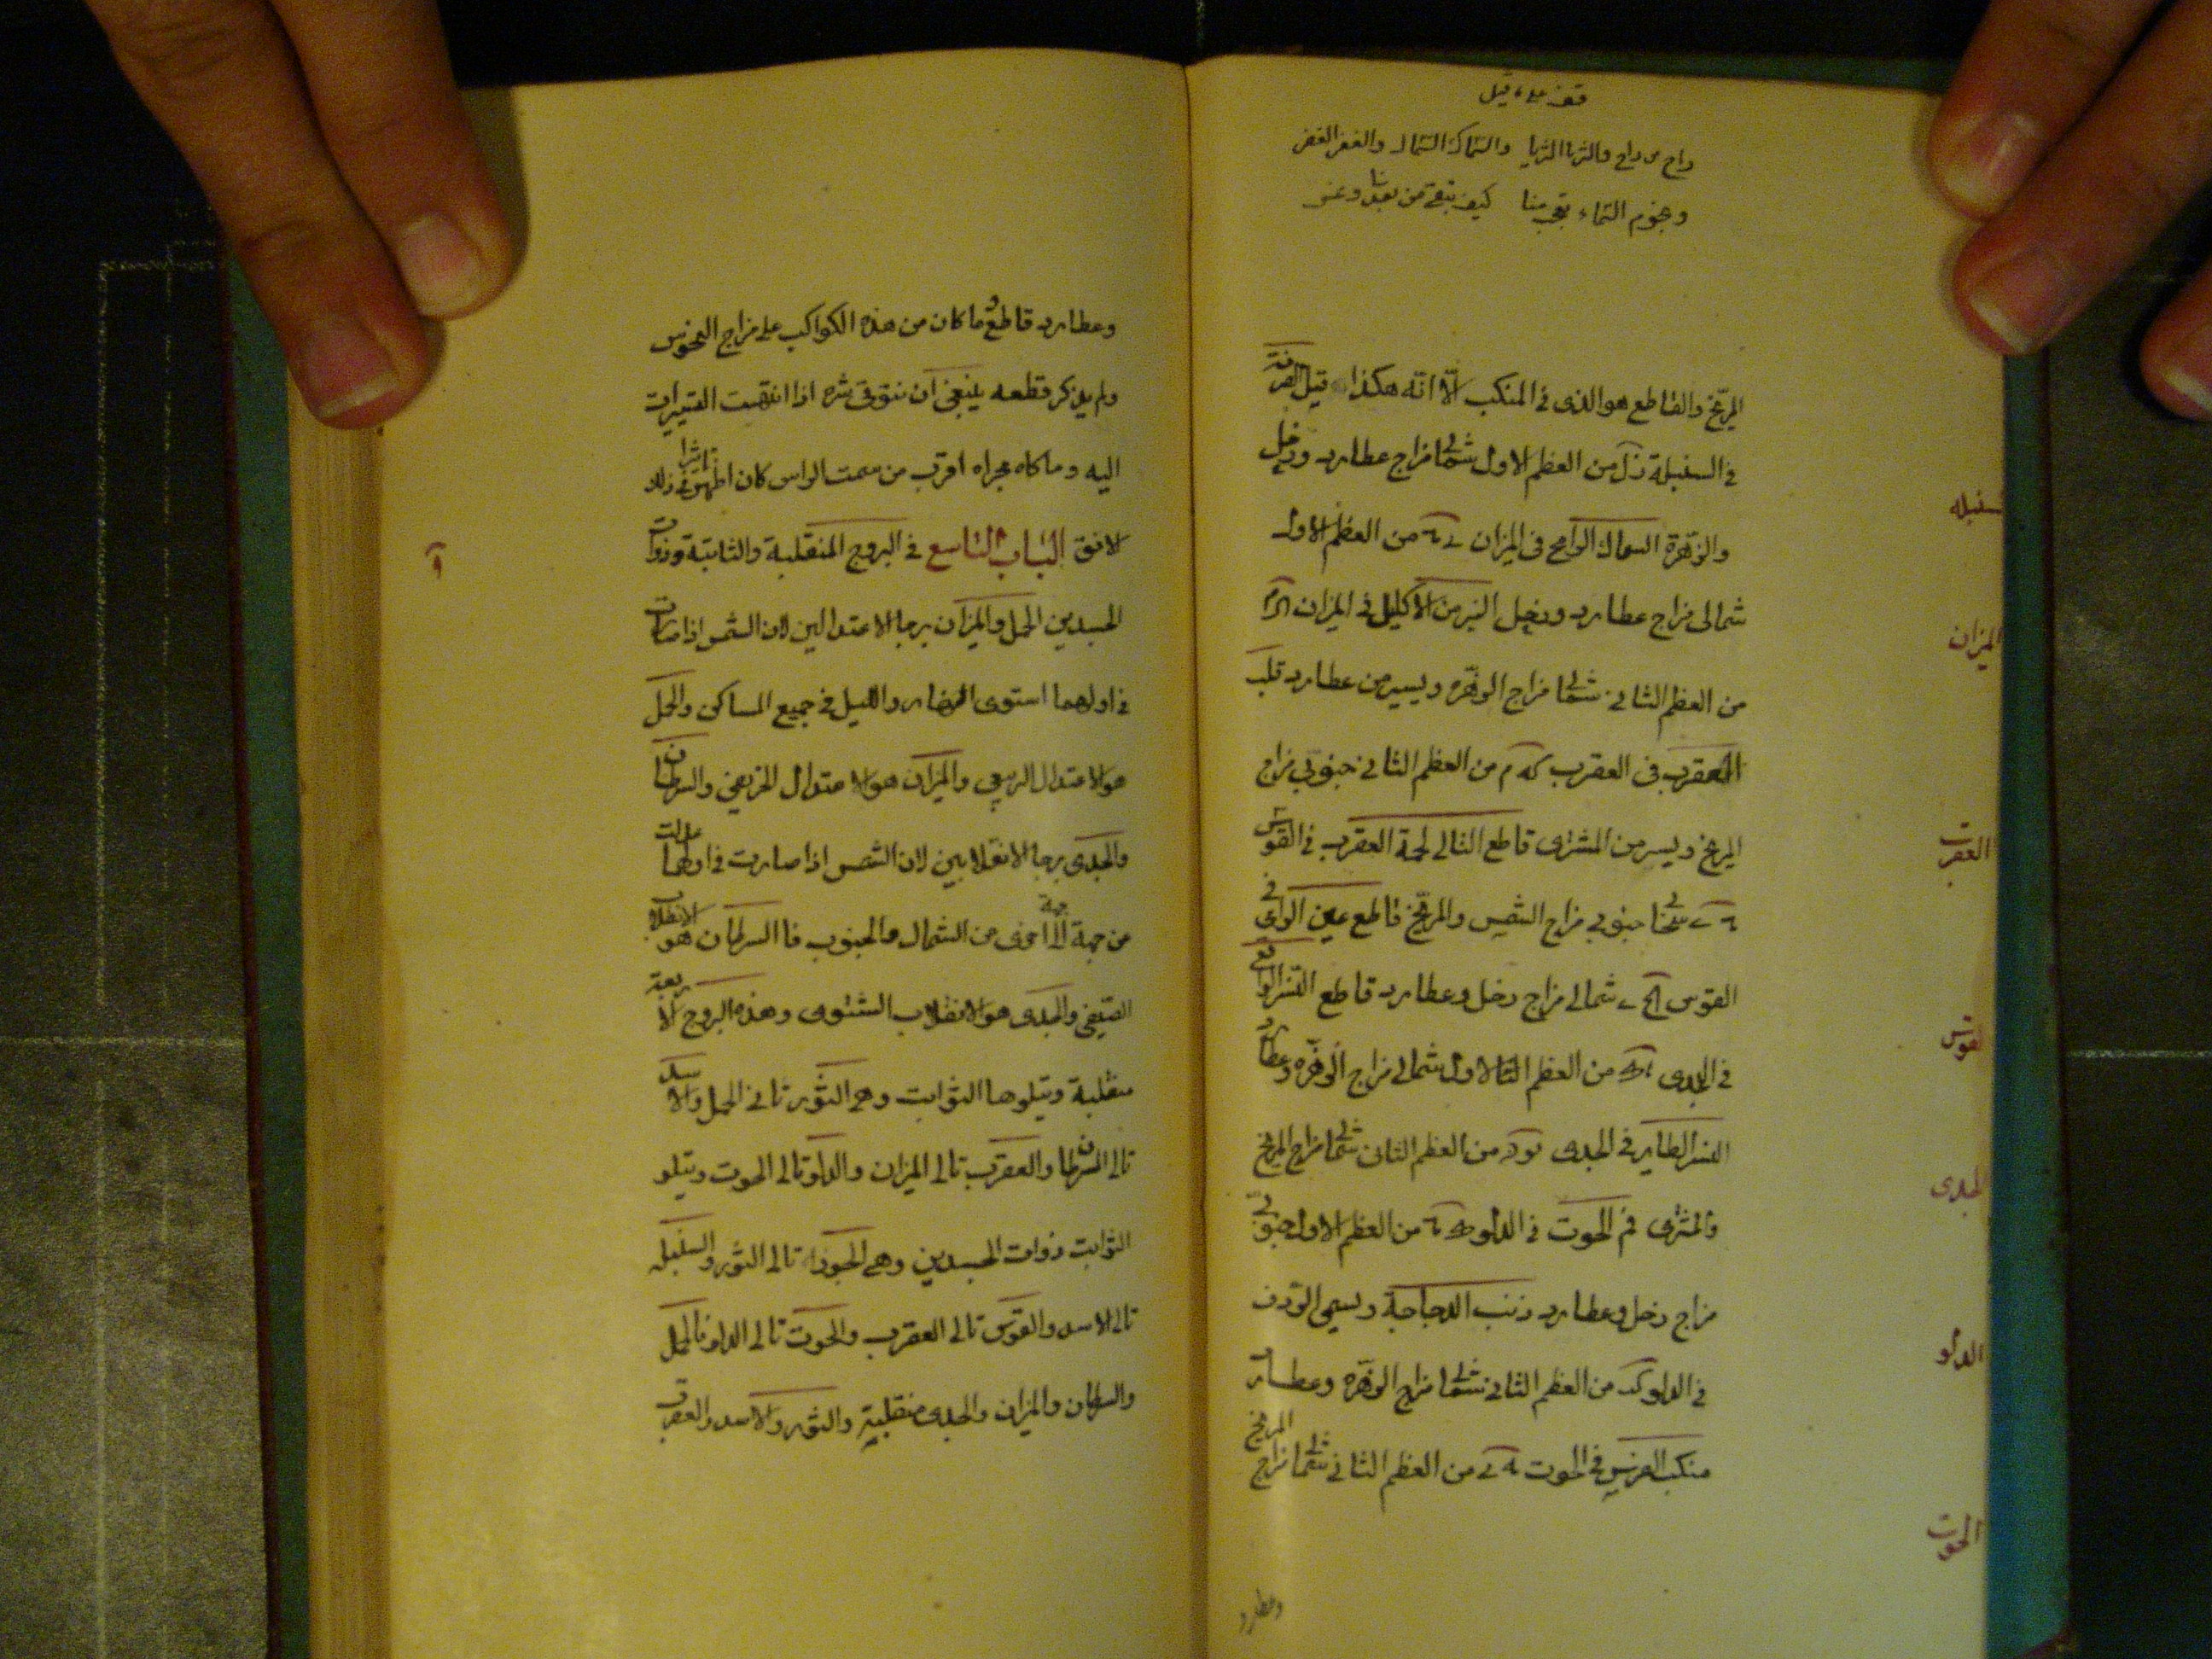 راح من راح والثريا الثريا والسماك السماك والغفر الغفر
ونجوم السماء تعجب منا كيف تبقى من بعدنا و
المريخ والقاطع هو الذى فى المنكب الا انه هكذا قيل الصرفة
فى السنبلة من العظم الاول شمالى مزاج عطارد وزحل
سنبله
والزهرة السماك الرامح فى الميزان من العظم الاول
شمالى مزاج عطارد وزحل النير من الاكليل فى الميزان
الميزان
من العظم الثانى شمالى مزاج الزهره ويسير من عطارد قلب
العقرب فى العقرب كه م من العظم الثانى جنوبى مزاج
المريخ ويسير من المشترى قاطع التالى لحمة العقرب فى القوس
العقرب
سحابى جنوبى مزاج الشمس والمريخ قاطع عين الرامى فى
القوس شمالى مزاج زحل وعطارد قاطع النسر الواقع
القوس
فى الجدى من العظم الاول شمالى مزاج الزهره وعطارد
النسر الطاير فى الجدى من العظم الثانى شمالى مزاج المريخ
الجدى
والمشترى فم الحوت فى الدلو من العظم الاول جنوبى
مزاج زحل وعطارد ذنب الدجاجة ويسمى الردف
الدلو
فى الدلو كد من العظم الثانى شمالى مزاج الزهره وعطارد
منكب الفرس فى الحوت من العظم الثانى شمالى مزاج المريخ
الحوت
وعطارد
وعطارد قاطع وما كان من هذه الكواكب على مزاج النحوس
ولم يذكر قطعه ينبغى ان نتوقى شره اذا انتهت التسييرات
اليه وما كان مجراه اقرب من سمت الراس كان اظهر تاثيرا فى ذلك
الافق الباب التاسع فى البروج المنقلبة والثابتة وذوات
الجسدين الحمل والميزان برجا الاعتدالين لان الشمس اذا صارت
فى اولهما استوى النهار والليل فى جميع المساكن والحمل
هو الاعتدال الربيعى والميزان هو الاعتدال الخريفى والسرطان
والجدى برجا الانقلابين لان الشمس اذا صارت فى اولهما مالت
من جهة الى جهة اخرى من الشمال والجنوب فا السرطان هو الانقلاب
الصيفى والجدى هو الانقلاب الشتوى وهذه البروج الاربعة
منقلبة وتتلوها الثوابت وهى الثور تالى الحمل والاسد
تالى السرطان والعقرب تالى الميزان والدلو تالى الحوت ويتلو
الثوابت ذوات الجسدين وهى الجوزاء تالى الثور والسنبله
تالى الاسد والقوس تالى العقرب والحوت تالى الدلو فالحمل
والسرطان والميزان والجدى منقلبية والثور والاسد والعقرب